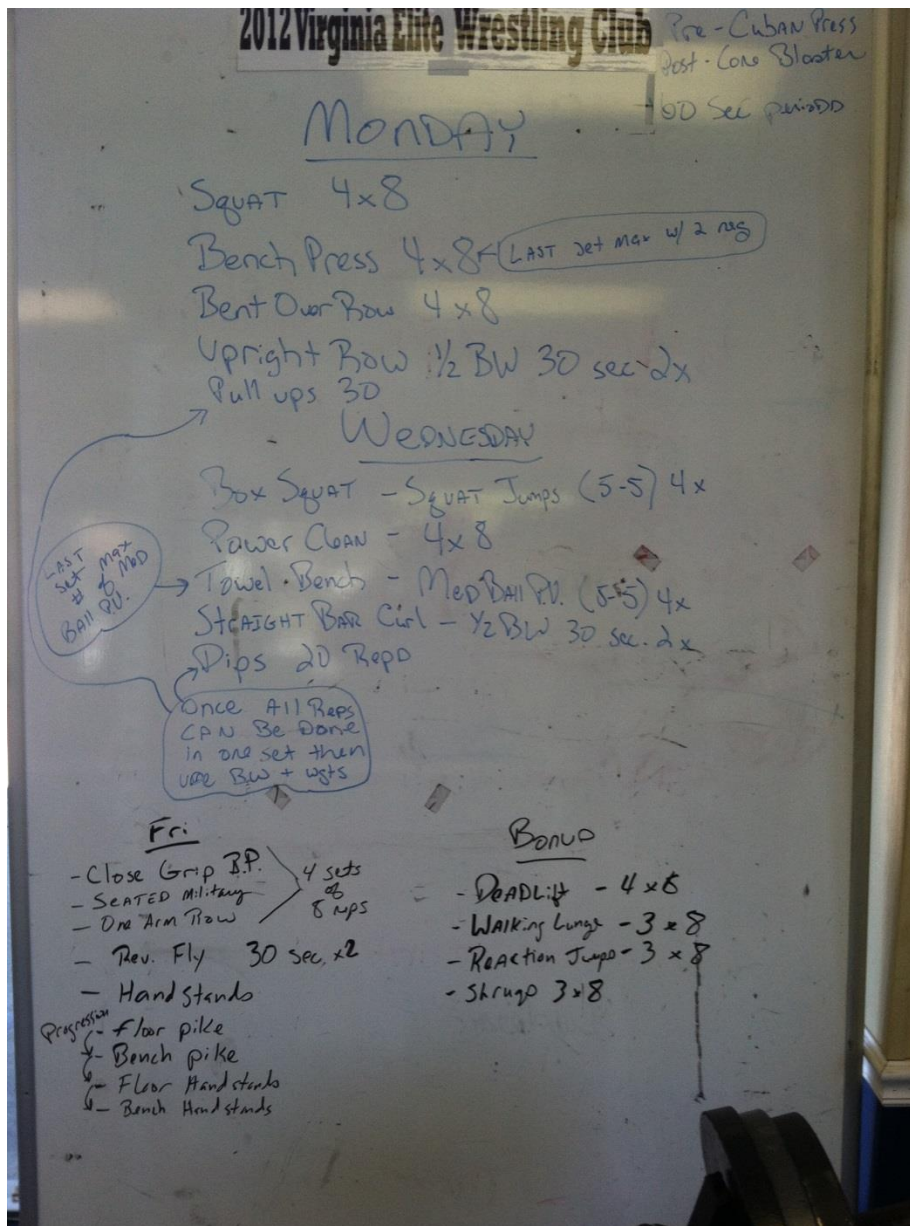 2012 Virginia Elite Wrestling Club
Pre - Cuban Press
Post - Core Blaster
60 Sec perioDD
MONDAY
SQUAT 4x8
Bench Press 4x8
LAST set max w/ 2 neg
Bent Over Row 4x8
Upright Row 1/2 BW 30 sec-2x
Pull ups 30
WEDNESDAY
Box SQUAT - SQUAT Jumps (5-5) 4x
Power Clean - 4x8
LAST
set max
# of MeD
BAll P.U.
Towel Bench - Med Ball P.U. (5-5) 4x
STRAIGHT BAR Curl - 1/2 BW 30 sec-2x
Dips 20 Reps
Once All Reps
CAN Be Done
in one set then
use BW + wgts
Fri
- Close Grip B.P.
- SEATED Military
- One Arm Row
4 sets
of
8 reps
- Rev. Fly 30 sec. x2
- Hand stands
Progression
- Floor pike
- Bench pike
- Floor Handstands
- Bench Handstands
Bonus
- DeADLift - 4 x
- WAlking Lunge - 3 x 8
- ReAction Jumps - 3 x 8
- Shrugs 3x8